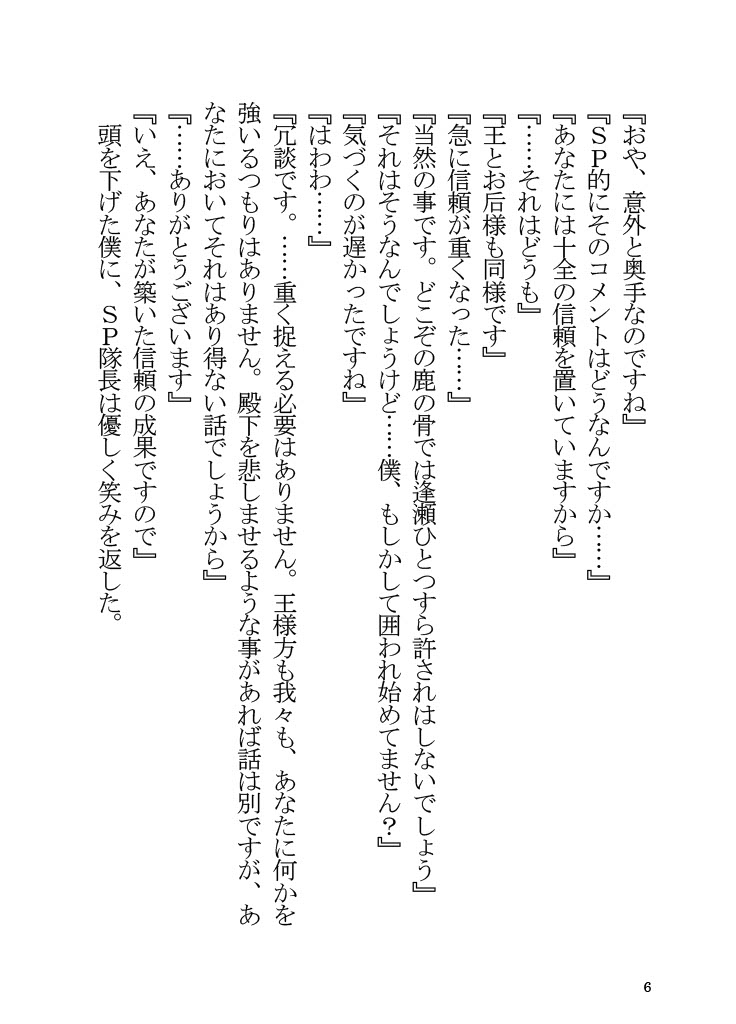 『おや、意外と奥手なのですね』
『ＳＰ的にそのコメントはどうなんですか……』
『あなたには十全の信頼を置いていますから』
『……それはどうも』
『王とお后様も同様です』
『急に信頼が重くなった……』
『当然の事です。どこぞの鹿の骨では逢瀬ひとつすら許されはしないでしょう』
『それはそうなんでしょうけど……僕、もしかして囲われ始めてません？』
『気づくのが遅かったですね』
『はわわ……』
『冗談です。……重く捉える必要はありません。王様方も我々も、あなたに何かを
強いるつもりはありません。殿下を悲しませるような事があれば話は別ですが、あ
なたにおいてそれはあり得ない話でしょうから』
『……ありがとうございます』
『いえ、あなたが築いた信頼の成果ですので』
頭を下げた僕に、ＳＰ隊長は優しく笑みを返した。
6